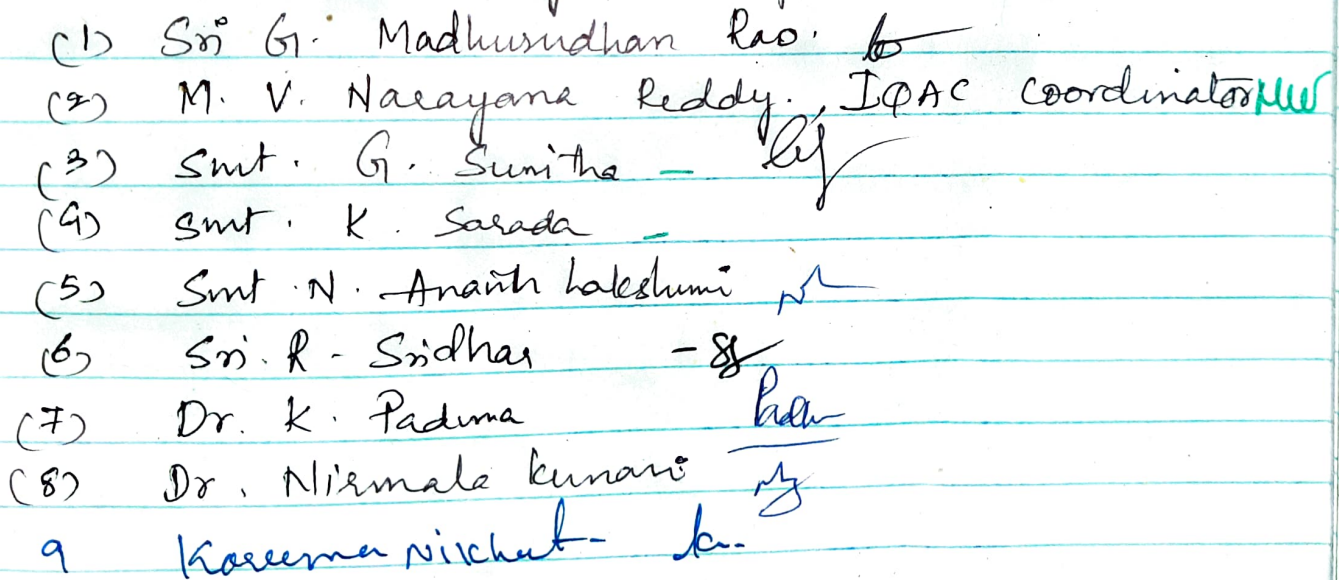 (1) Sri G. Madhusudhan Rao.
(2) M. V. Narayana Reddy., IQAC Coordinator
(3) Smt. G. Sunitha -
(4) Smt. K. Sarada -
(5) Smt. N. Ananth Lakshmi
(6) Sri. R - Sridhar -
(7) Dr. K. Padma
(8) Dr. Nirmala Kumari
9 Kareema